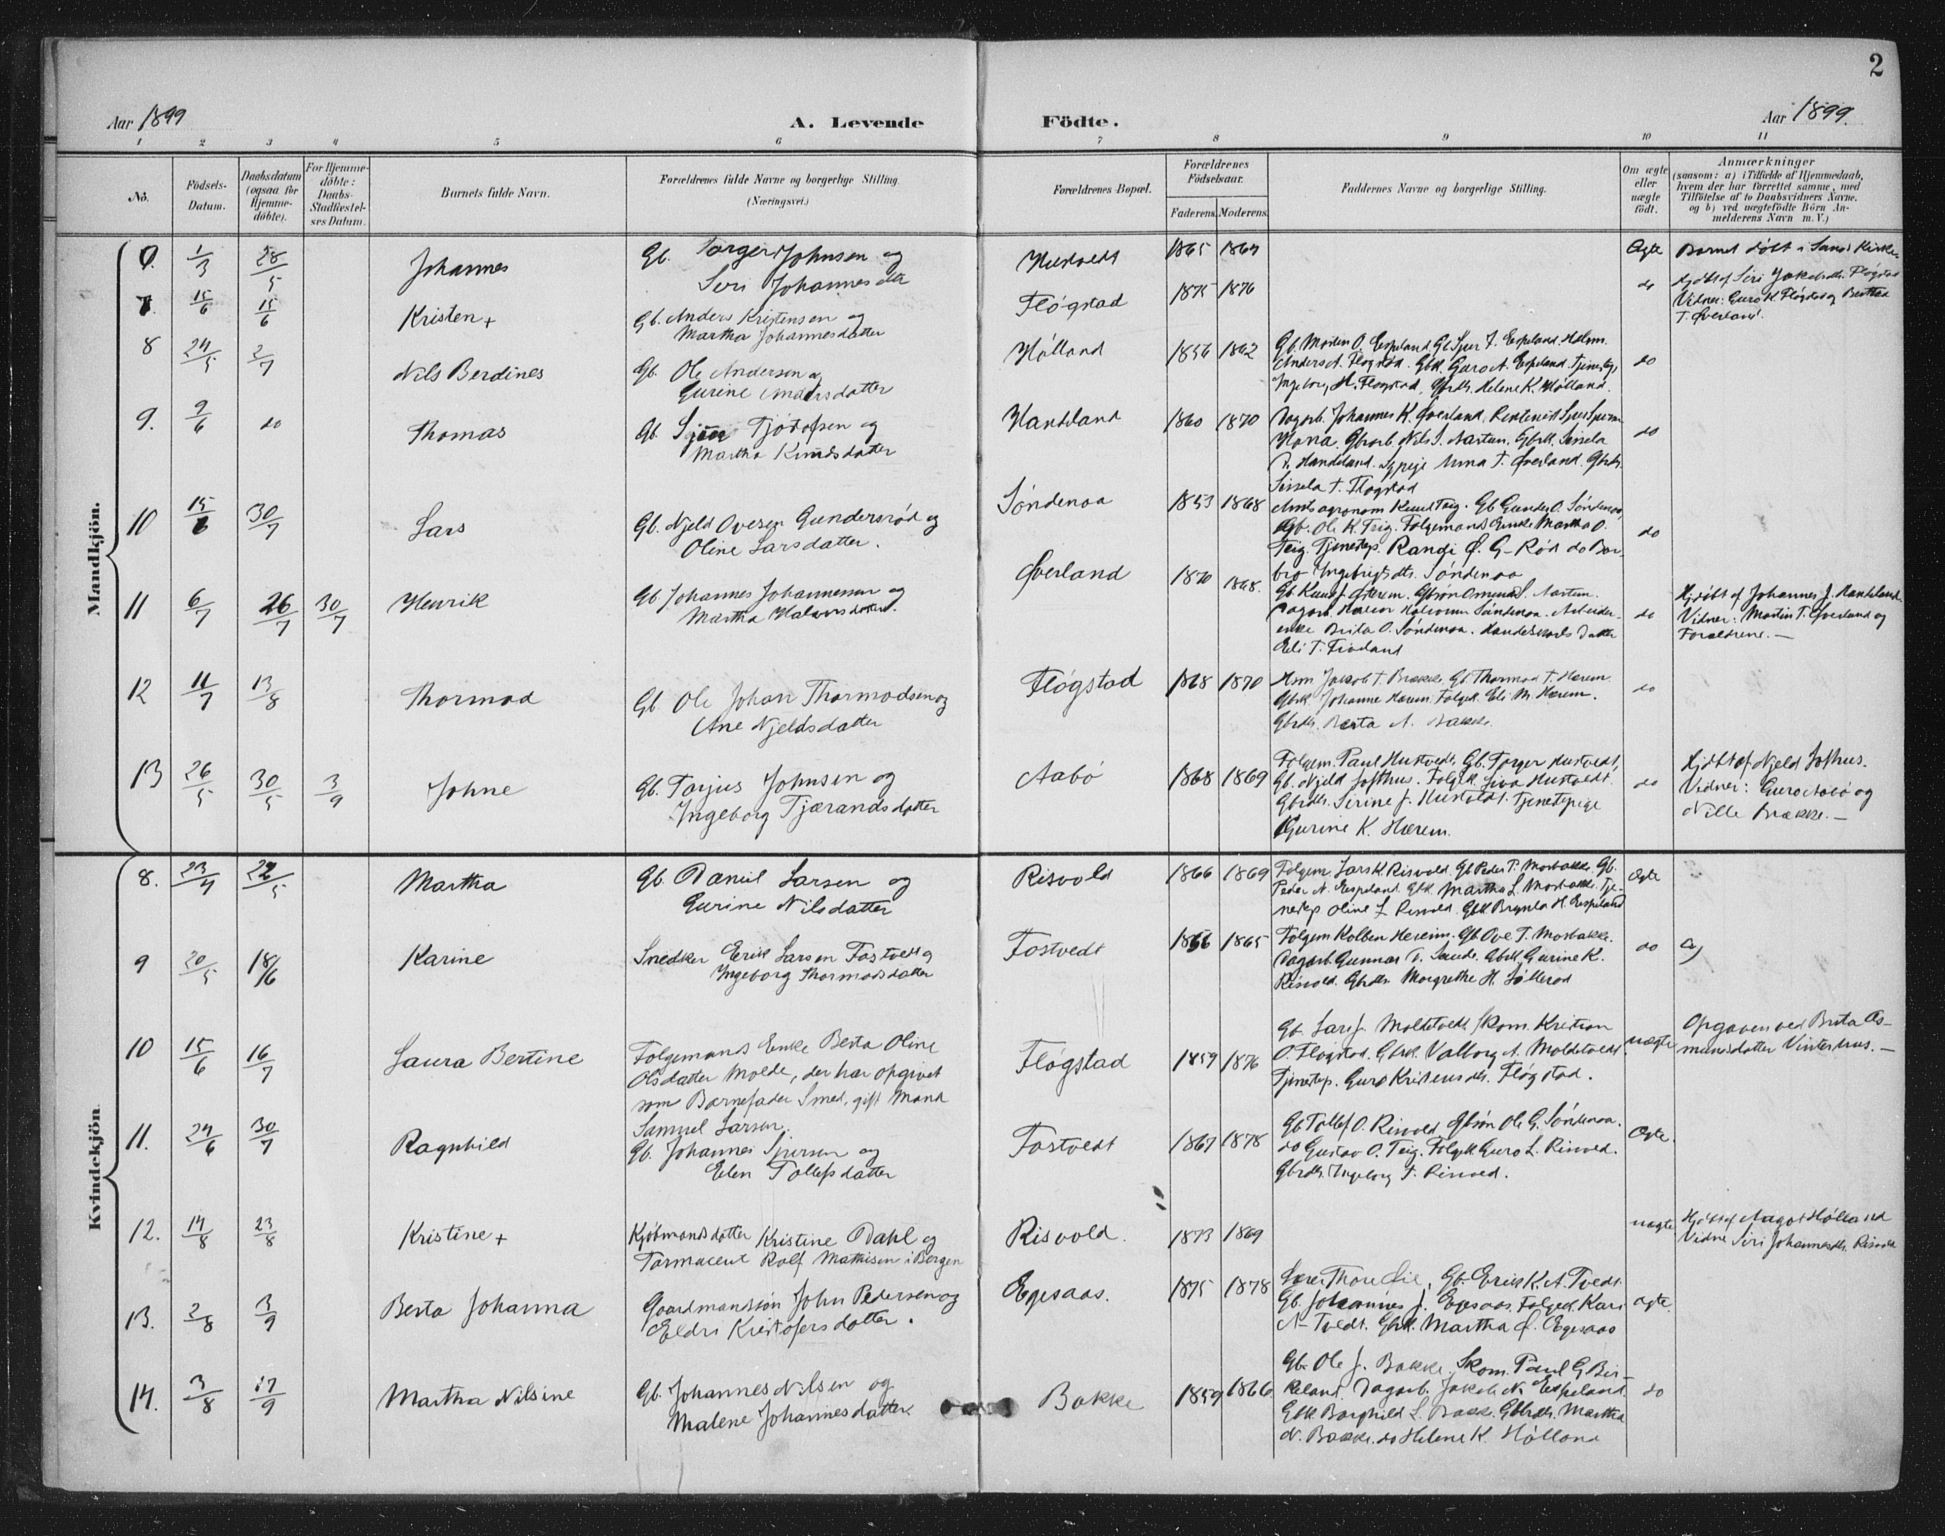 2
Aar 1899
A. Levende Födte.
Aar 1899.
1 2 3 4 5 6 7 8 9 10 11
No.
Födsels-Datum.
Daabsdatum (ogsaa for Hjemme-döbte).
For Hjemme-döbte: Daabs-Stadfæstel-ses Datum.
Barnets fulde Navn.
Forældrenes fulde Navne og borgerlige Stilling. (Næringsvei.)
Forældrenes Bopæl.
Forældrenes Födselsaar.
Faderens. Moderens.
Faddernes Navne og borgerlige Stilling.
Om ægte eller uægte födt.
Anmærkninger
(saasom: a) i Tilfælde af Hjemmedaab,
hvem der har forrettet samme, med
Tilföielse af to Daabsvidners Navne.
og b) ved uægtefödte Börn An-
melderens Navn m. V.)
Mandkjön.
1/3 28/5 Johannes
Gb. Torger Johnsen og
Siri Johannesdtr
Hustvedt 1865 1869 Ægte
Barnet døbt i Sand Kirke
15/6 15/6 Kristen +
Gb. Anders Kristensen og
Martha Johannesdatter
Fløgstad 1875 1876 do
Hjdbt af Siri Jakobsdtr. Fløgstad
Vidner: Guro K. Fløgstad og Bertha
T. Øverland.
8 24/5 2/7 Nils Berdines
Gb. Ole Andersen og
Gurine Andersdatter
Hølland 1856 1862
Gb. Morten O. Espeland Gb. Sjur T. Espeland. Helem.
Anders A. Fløgstad. Gbk. Guro A. Espeland. Tjenestep.
Ingeborg H. Fløgstad. Gbrdtr. Helene K. Hølland.
do
9. 2/6 do Thomas
Gb. Sjur Tjødofsen og
Martha Knudsdatter
Handeland 1860 1870
Dagarb. Johannes K. Øverland.
T. Handeland. Sypige Anna T. Øverland. Gbrdtr.
Sissela T. Fløgstad
do
10 15/6 30/7 Lars
Gb. Njeld Ovesen Gundersrød og
Oline Larsdatter.
Søndenaa 1853 1868
Amtsagronom Knud Teig. Gb. Gunder O. Søndenaa,
Gb. Ole K. Teig. Følgemands Enke Martha O.
Teig. Tjenestep. Randi Ø. G-Rød do Bor-
bro Ingebrigtsdtr. Søndenaa
do
11 6/7 26/7 30/7 Henrik
Gb. Johannes Johannessen og
Martha Halvorsdatter.
Øverland 1870 1868.
enke Brita O. Søndenaa. Handelskarls Datter
Eli T. Fivoland
do
Hjdbt af Johannes J. Handeland.
Vidner: Martin T. Øverland og
Forældrene. —
12 11/7 13/8 Thormod
Gb. Ole Johan Thormodsen og
Ane Njeldsdatter
Fløgstad 1868 1870
Jakob T. Brække. Gb. Thormod T. Hærem
Gbrk. Johanne Hærem. Følgek. Eli M. Hærem.
Gbrdtr. Berta A. Bakke.
do
13 26/5 30/5 3/9 Johne
Gb. Torjus Johnsen og
Ingeborg Tjærandsdatter
Aabö 1868 1869
Følgem. Paul Hustvedt. Gb. Torger Hustvedt,
Gb. Njeld Jofthus. Følgek. Siva Hustvedt.
Gbrdtr. Serine J. Hustvedt. Tjenestepige
Gurine K. Hærem.
do
Hjdbt af Njeld Jofthus.
Vidner: Guro Aabö og
Nille Brække. —
Kvindekjön
8. 23/4 22/5 Martha
Gb. Daniel Larsen og
Gurine Nilsdatter
Risvold 1866 1869
Følgem. Lars K. Risvold. Gb. Peder T. Mosbakke. Gb.
Peder N. Espeland. Gbk. Martha L. Mosbakke. Tje-
nestep Oline L. Risvold. Gbk. Brynla H. Espeland
Ægte
9 20/5 18/6 Karine
Snedker Erik Larsen Fostvedt og
Ingeborg Thormodsdatter
Fostvedt 1866 1865
Følgem. Kolben Hereim. Gb. Ove T. Mosbakke.
Dagarb. Gunnar T. Sande. Gbrk. Gurine K.
Risvold. Gbrdtr. Margrethe H. Løllerød
do
10 15/6 16/7 Laura Bertine
Følgemands Enke Berta Oline
Olsdatter Molde, der har opgivet
som Barnefader Smed, gift Mand
Samuel Larsen.
Fløgstad 1859 1876
Gb. Lars J. Moldetvedt. Skom. Kristian
O. Fløgstad. Gbrk. Valborg A. Moldetvedt.
Tjenestep. Guro Kristensdtr. Fløgstad.
uægte
Opgaven ved Brita As-
mundsdatter Vinterhus. —
11. 24/6 30/7 Ragnhild
Gb. Johannes Sjursen og
Elen Tollefsdatter
Fostvedt 1867 1878
Gb. Tollef O. Risvold. Gbsøn Ole G. Søndenaa.
do Gustav O. Teig. Følgek. Guro L. Risvold.
Gbrdtr. Ingeborg T. Risvold.
Ægte.
12. 14/8 23/8 Kristine +
Kjøbmandsdatter Kristine Dahl og
Farmaceut Rolf Mathisen i Bergen
Risvold. 1873 1869 uægte
Hjdbt af Aagot Hølland
Vidne Siri Johannesdtr. Risvold
13. 2/8 3/9 Berta Johanna
Gaardmandssøn John Pedersen og
Eldri Kristofersdatter.
Egesaas. 1875 1878
Lærer Thore Lie, Gb. Erik K. A. Tvedt.
Gb. Johannes J. Egesaas. Følgek. Kari
N. Tvedt. Gbrk. Martha Ø. Egesaas
ægte.
14. 3/8 17/9 Martha Nilsine
Gb. Johannes Nilsen og
Malene Johannesdatter
Bakke 1859 1866
Gb. Ole J. Bakke, Skom. Paul G. Bir-
keland. Dagarb. Jakob N. Espeland.
Gbk. Borghild L. Bakke. Gbrdtr. Martha
N. Bakke. do Helene K. Hølland
do